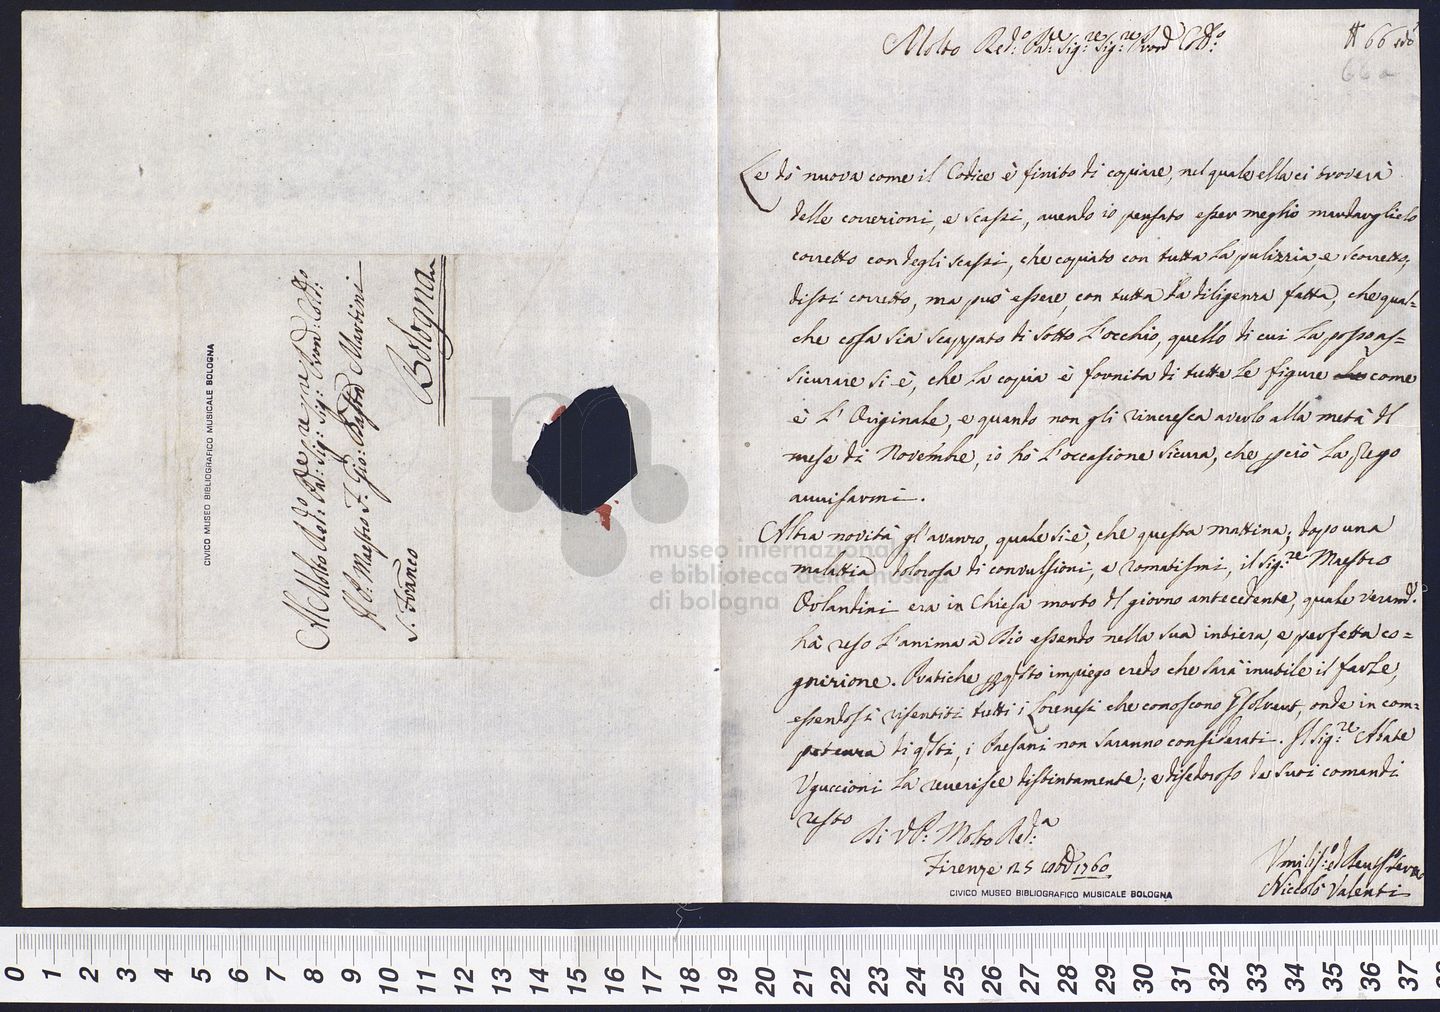 Al Molto Red:do Pad:re Sig:re Sig:re Pron: Col:mo
Il P. Maestro F. Gio: Batta Martini
S. Franco
Bologna
CIVICO MUSEO BIBLIOGRAFICO MUSICALE BOLOGNA
Molto Red:o Pad:re Sig:re Sig:re Pron Col:mo
66
66a
Le dò nuova come il Codice è finito di copiare, nel quale ella ci troverà
delle correzioni, e scassi, avendo io pensato esser meglio mandarglielo
corretto con degli scassi, che copiato con tutta la pulizzia, e scorretto,
dissi corretto, ma può essere, con tutta la diligenza fatta, che qual=
che cosa sia scappato di sotto l'occhio, quello di cui la posso as=
sicurare si è, che la copia è fornita di tutte le figure come
è l'Originale, e quando non gli rincresca averlo alla metà del
mese di Novembre, io hò l'occasione sicura, che perciò la prego
avvisarmi.
Altra novità gl'avanzo, quale si è, che questa mattina; dopo una
malattia dolorosa di convulsioni, e romatismi, il Sig:re Maestro
Orlandini era in Chiesa morto il giorno antecedente, quale veram:
hà reso l'anima a Dio essendo nella sua intiera, e perfetta co=
gnizione. Pratiche per questo impiego credo che sarà inutile il farle,
essendosi risentiti tutti i Lorenesi che conoscono Gsolvent, onde in com=
petenza di questi, i Paesani non saranno considerati. Il Sig:re Abate
Uguccioni la riverisce distintamente; e desideroso de suoi comandi
resto
Di V.P: Molto Red:a
Firenze 25 8bre 1760
Umiliss:o ed Obbligss:o Servo
Niccolò Valenti
CIVICO MUSEO BIBLIOGRAFICO MUSICALE BOLOGNA
museo internazionale
e biblioteca della musica
di bologna
0 1 2 3 4 5 6 7 8 9 10 11 12 13 14 15 16 17 18 19 20 21 22 23 24 25 26 27 28 29 30 31 32 33 34 35 36 37